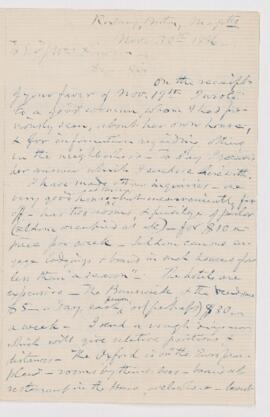 Nov. 30th
On the receipt
of your favor of Nov. 19th I wrote
to a good woman whom I had pre-
viously seen, about her own house,
& for information regarding others
in the neighborhood. To day I received
her answer which I enclose herewith.
I have made other inquiries - one
very good house, but inconveniently far
off - has two rooms & privilege of parlor
(seldom occupied at all) - for $10 a
piece per week - Seldom can one en-
gage lodging & board in such houses for
less than "a season" - The hotels are
expensive - The Brunswick & the Vendome
$5 - a day, each person, or (perhaps) $30
a week - I send a rough diagram
which will give relative positions &
distances - The Oxford is on the European
plan - rooms by themselves - board at
restaurant in the House, or elsewhere -